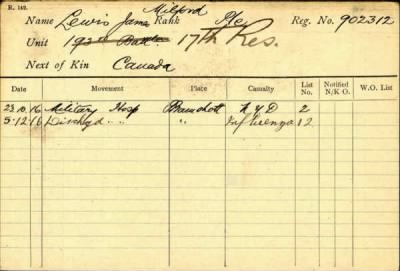 R. 149.
Milford
Name Lewis James Rank Pte Reg. No. 902312
Unit 193rd Battn 17th Res.
Next of Kin Canada
Date Movement Place Casualty List No. Notified N/K O. W.O. List
23.10.16 Military Hosp Bramshott N Y D 2
5.12.16 Dischgd " " " Influenza 12